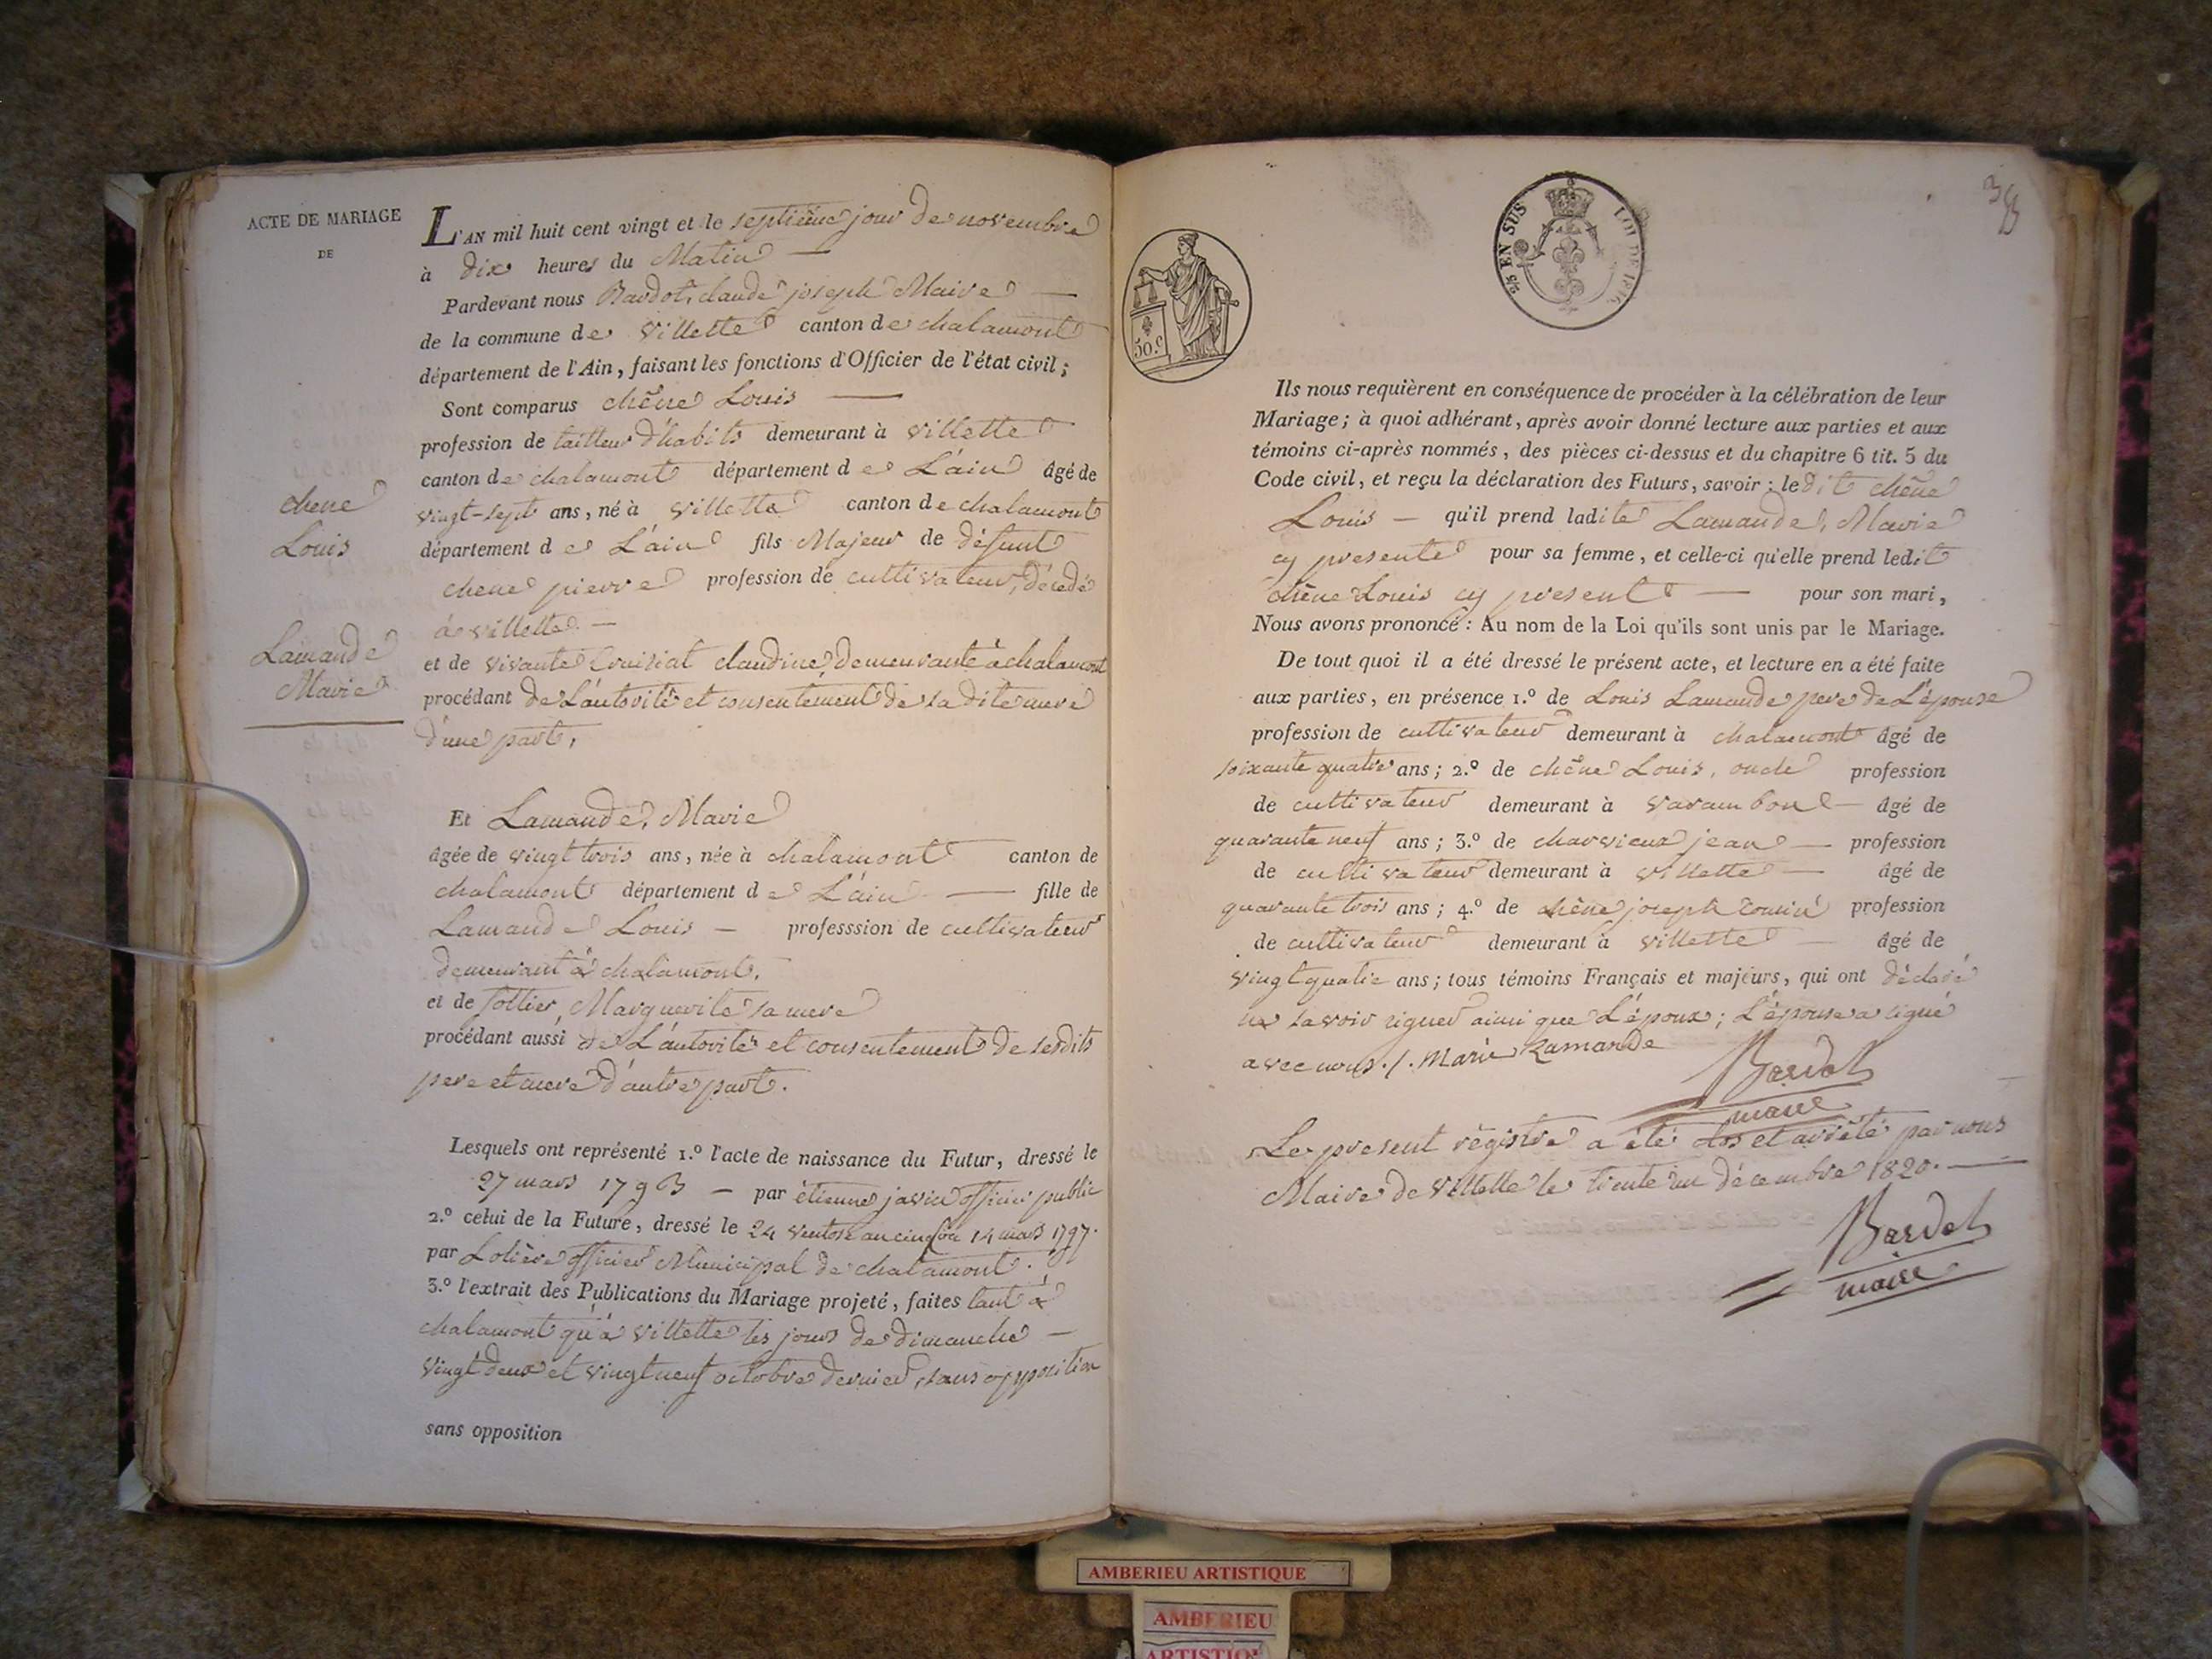 ACTE DE MARIAGE
DE
chene
Louis
Lamande
Marie
L'AN mil huit cent vingt et le septième jour de novembre
à dix heures du Matin —
Pardevant nous Bardot, claude joseph Maire —
de la commune de villette canton de chalamont
département de l'Ain, faisant les fonctions d'Officier de l'état civil;
Sont comparus chêne Louis —
profession de tailleur d'habits demeurant à villette
canton de chalamont département de L'ain âgé de
vingt-sept ans, né à villette canton de chalamont
département de L'ain fils Majeur de défunt
chene pierre profession de cultivateur, décedé
à villette. —
et de vivante Cruisiat claudine demeurante à chalamont
procédant de L'autorité et consentement de sa dite mere
d'une part,
Et Lamande, Marie
âgée de vingt trois ans, née à chalamont canton de
chalamont département de L'ain — fille de
Lamande Louis — professsion de cultivateur
demeurant à chalamont.
et de Marguerite sa mere
procédant aussi de L'autorité et consentement de sesdits
pere et mere d'autre part.
Lesquels ont représenté 1.º l'acte de naissance du Futur, dressé le
27 mars 1793 — par étienne officier public
2.º celui de la Future, dressé le 24 ventose an cinq ou 14 mars 1797.
par Lolière officier Municipal de chalamont.
3.º l'extrait des Publications du Mariage projeté, faites tant à
chalamont qu'à villette les jours de dimanche —
vingt deux et vingt neuf octobre dernier, sans opposition
sans opposition
50.c
2/5 EN SUS
LOI DE 1816
38
Ils nous requièrent en conséquence de procéder à la célébration de leur
Mariage; à quoi adhérant, après avoir donné lecture aux parties et aux
témoins ci-après nommés, des pièces ci-dessus et du chapitre 6 tit. 5 du
Code civil, et reçu la déclaration des Futurs, savoir: ledit chêne
Louis — qu'il prend ladite Lamande, Marie
cy presente pour sa femme, et celle-ci qu'elle prend ledit
chêne Louis cy present — pour son mari,
Nous avons prononcé: Au nom de la Loi qu'ils sont unis par le Mariage.
De tout quoi il a été dressé le présent acte, et lecture en a été faite
aux parties, en présence 1.º de Louis Lamande pere de L'épouse
profession de cultivateur demeurant à chalamont âgé de
soixante quatre ans; 2.º de chêne Louis, oncle profession
de cultivateur demeurant à varambon — âgé de
quarante neuf ans; 3.º de charvieux jean — profession
de cultivateur demeurant à villette — âgé de
quarante trois ans; 4.º de chêne joseph cousin profession
de cultivateur demeurant à villette — âgé de
vingt quatre ans; tous témoins Français et majeurs, qui ont déclaré
ne savoir signer ainsi que L'époux; L'épouse a signé
avec nous./. Marie Lamande
Bardot
maire
Le present régistre a été clos et arrêté par nous
Maire de villette le trente un décembre 1820. —
Bardot
maire
AMBERIEU ARTISTIQUE
AMBERIEU
ARTISTIQUE